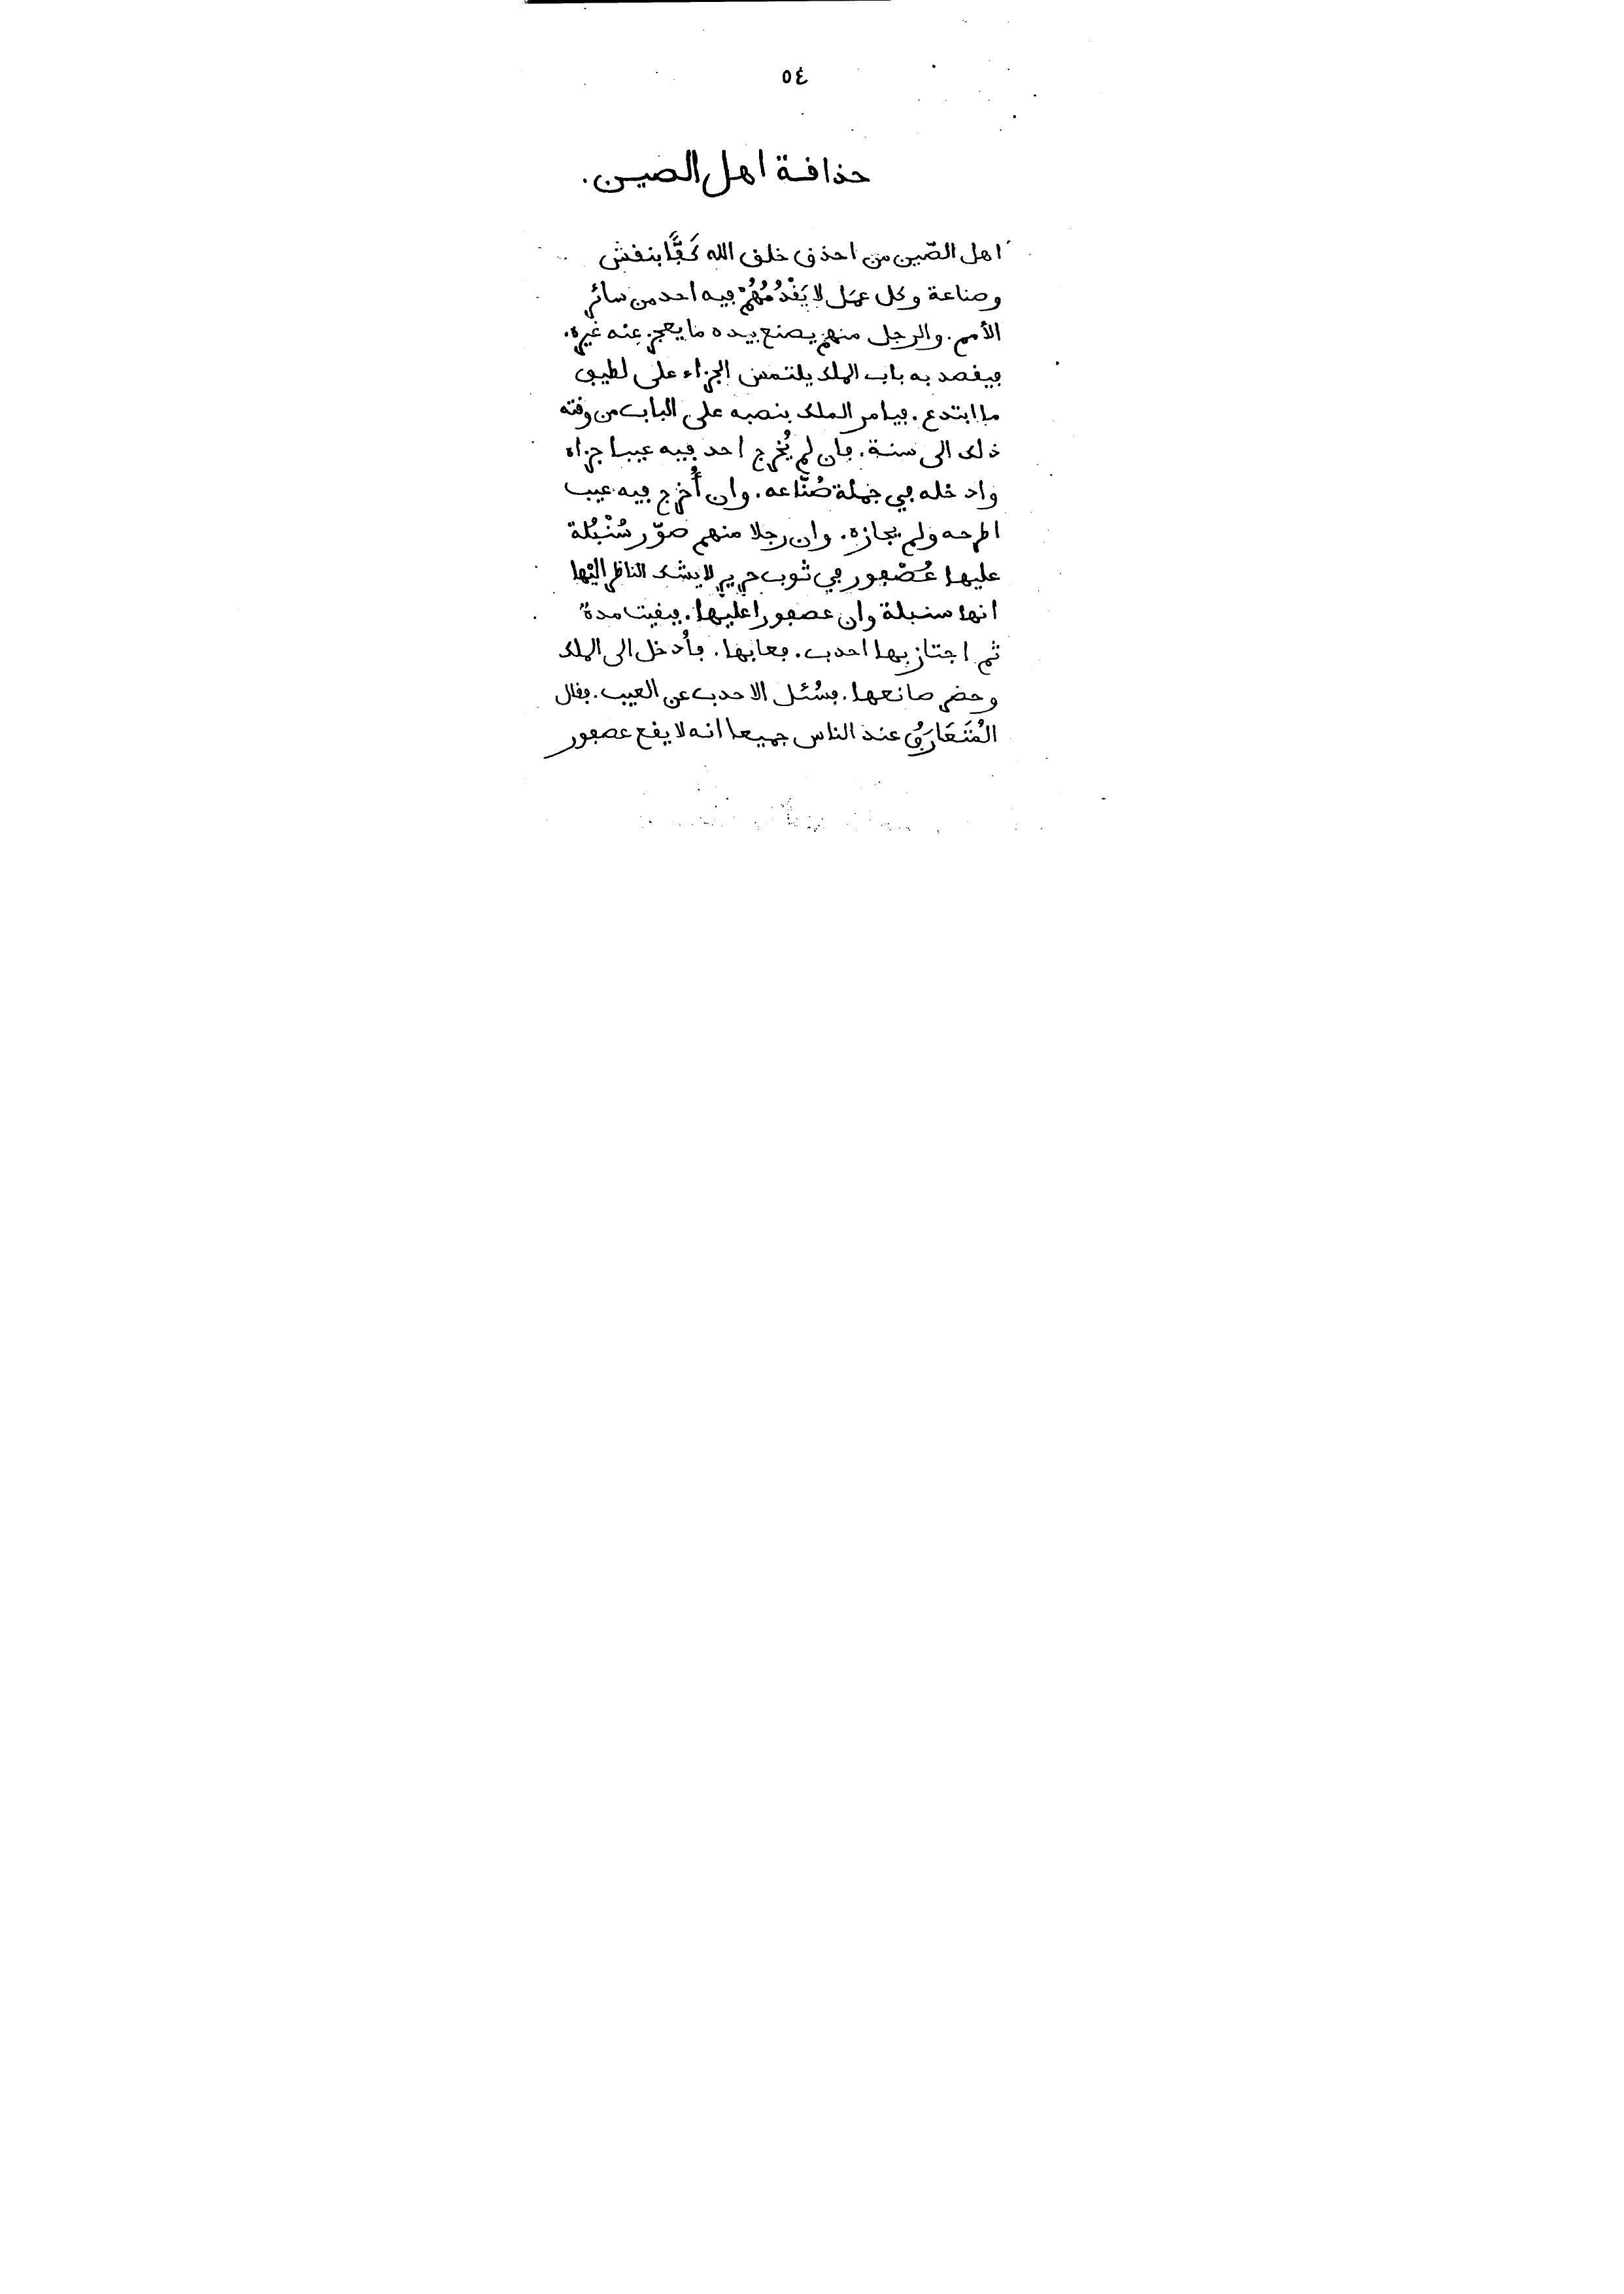 ٥٤
حذاقة اهل الصين.
اهل الصّين من احذق خلق الله كَفًّا بنقش
وصناعة وكل عمَل لا يَقْدُمُهُمْ فيه احد من سائر
الأمم. والرجل منهم يصنع بيده ما يعجز عنه غيره.
فيقصد به باب الملك يلتمس الجزاء على لطيف
ما ابتدع. فيامر الملك بنصبه على الباب من وقته
ذلك الى سنة. فان لم يُخرج احد فيه عيبا جزاه
وادخله في جملة صُنّاعه. وان أُخرج فيه عيب
اطرحه ولم يجازه. وان رجلا منهم صوّر سُنْبُلة
عليها عُصْفور في ثوب حرير لا يشك الناظر اليْها
انها سنبلة وان عصفورا عليها. فبقيت مدة
ثم اجتاز بها احدب. فعابها. فأُدخل الى الملك
وحضر صانعها. فسُئل الاحدب عن العيب. فقال
المُتَعَارَفُ عند الناس جميعا انه لا يقع عصفور